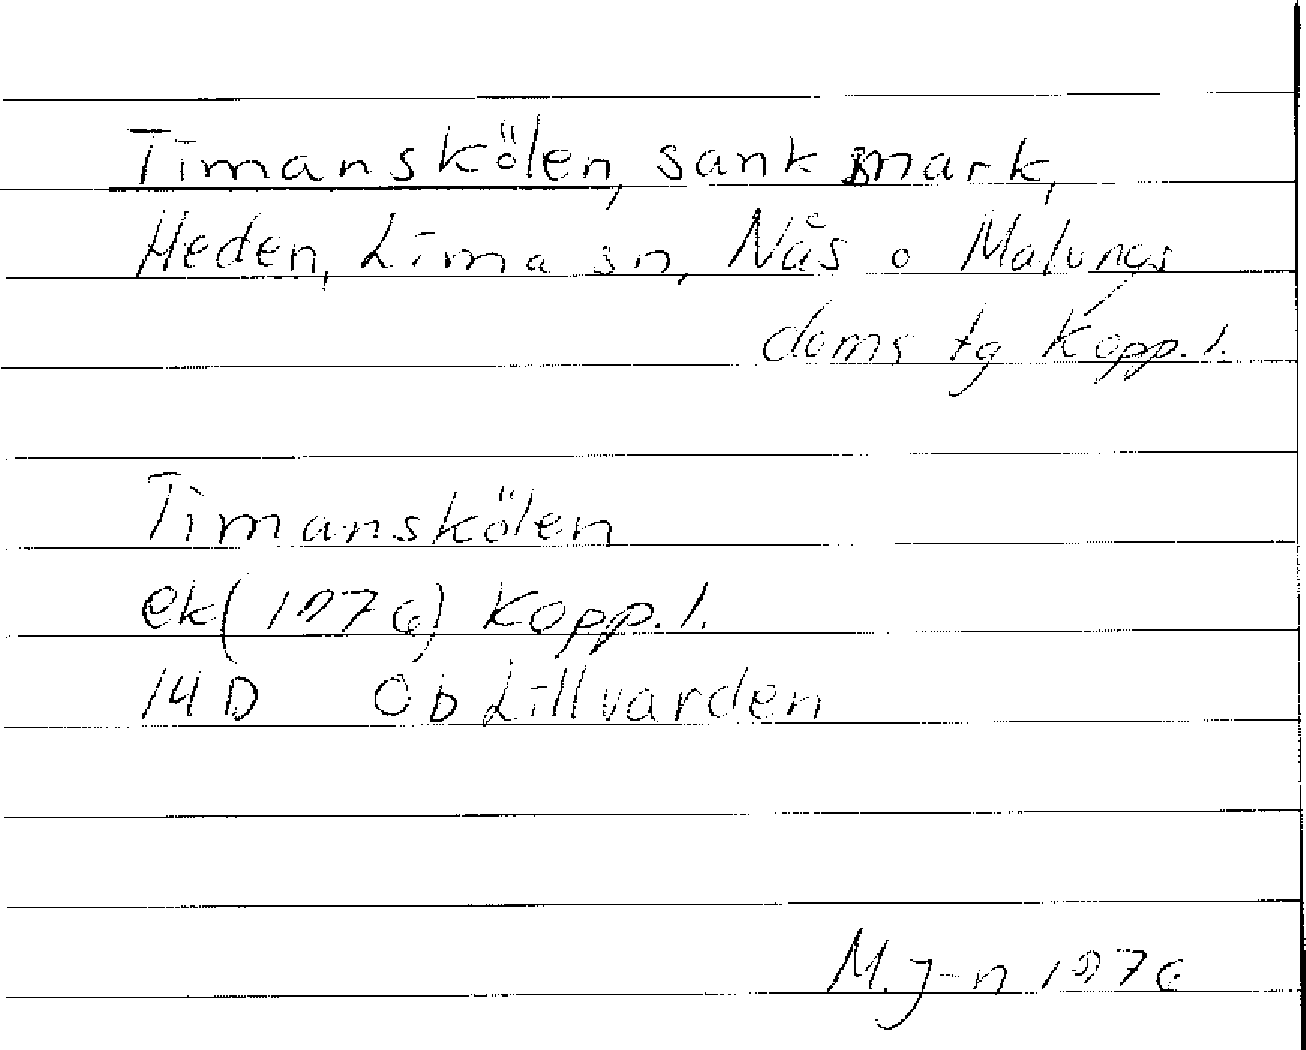 Timanskölen, sank mark,
Heden, Lima sn, Nås o Malungs
doms tg Kopp. l.
Timanskölen
ek (1976) Kopp. l.
14 D 0b Lillvarden
M. J-n 1976